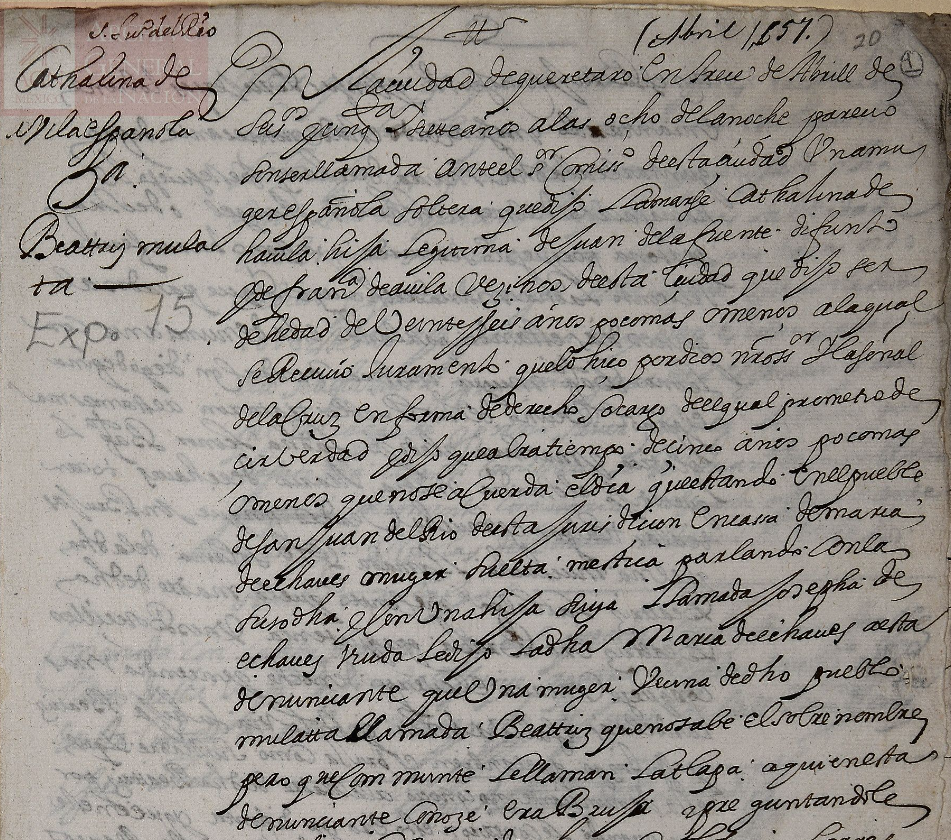 S. Juº. del Rio
(Abril 1657.)
20
1
GENERAL
DE LA NACION
MEXICO
Cathalina de
Avila española
Cª.
Beatriz mula
ta
Exp. 15
En la ciudad de queretaro En trece de Abrill de
seisºˢ y cinqᵗᵃ y siete años a las ocho de la noche parecio
sin ser llamada ante el sʳ Comissº de esta ciudad Una mu
ger española soltera que dijo Llamarse Cathalina de
havila hija Legitima de Juan de la fuente difunto
y de franᶜᵃ de avila Vezinos de esta Ciudad que dijo ser
de hedad de Veinte y seis años poco mas o menos a la qual
se Recivio Juramento que lo hiço por dios nrº sʳ y la señal
de la Cruz en forma de derecho so cargo de el qual prometio de
cir Verdad y dijo que abra tiempo de cinco años poco mas
o menos que no se aCuerda el dia que estando en el pueblo
de san Juan del Rio de esta Juris dicion en casa de maria
de echaves muger suelta mestiça parlando Con la
susodha y Con Una hija suya Llamada Josepha de
echaves Viuda Le dijo La dha Maria de echaves a esta
denunciante que Una muger Vecina de dho pueblo
mulatta llamada Beattriz que no sabe el sobre nombre
pero que Com munte Le llaman La tlapa a quien esta
denunciante Conoze era Bruja y pre guntandole